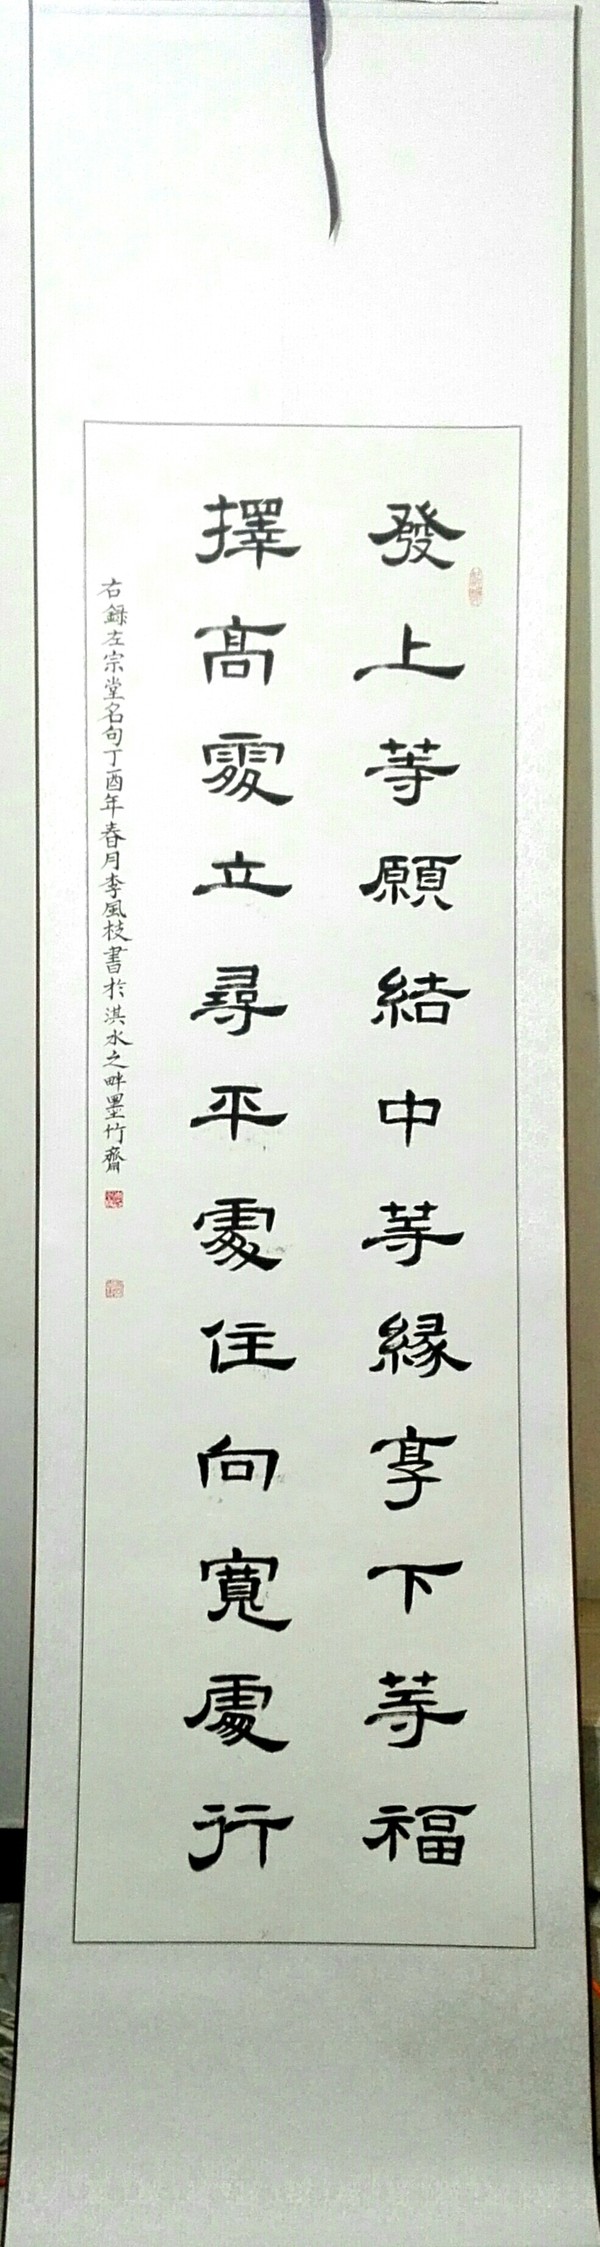 發上等願結中等緣享下等福
擇高處立尋平處住向寬處行
右錄左宗堂名句丁酉年春月李風枝書於淇水之畔墨竹齋